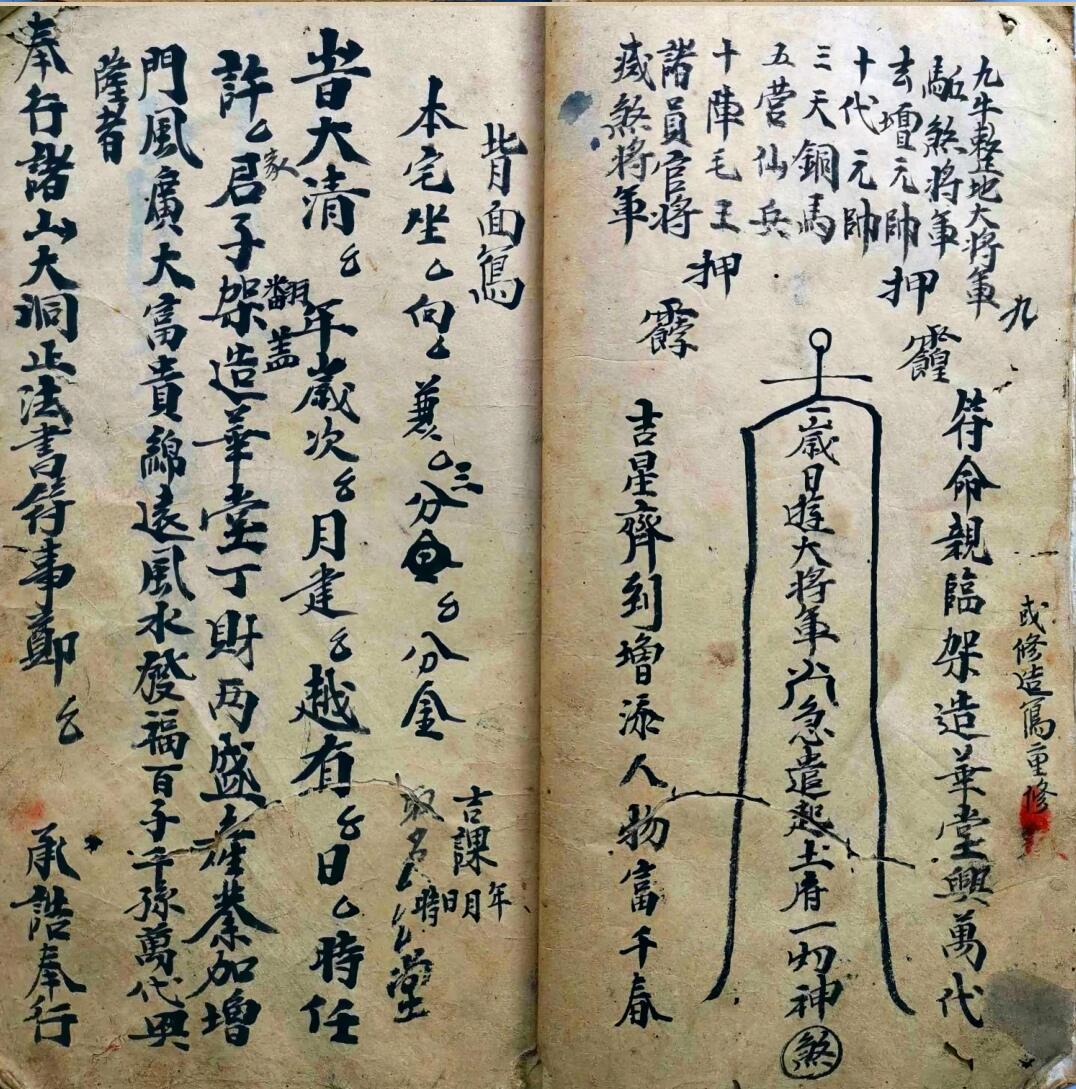 九牛整地大將軍
九
駈煞將軍
玄壇元帥
押
十代元帥
三天銅馬
五营仙兵
十陣毛王
押
諸員官將
瘟煞將軍
或修造寫重修
符命親臨架造華堂興萬代
歲日時大將軍 急遣起土府一切神
煞
吉星齊到增添人物富千春
背面寫
吉課
年月日時
本宅坐厶向厶兼厶三分
厶分金
堂
昔大清厶年歲次厶月建厶越有厶日厶時任
翻盖
許厶君子架造華堂丁財両盛産業加增
家
門風廣大富貴綿遠風水發福百子千孫萬代興
隆者
奉行諸山大洞正法書符事鄭厶 承誥奉行